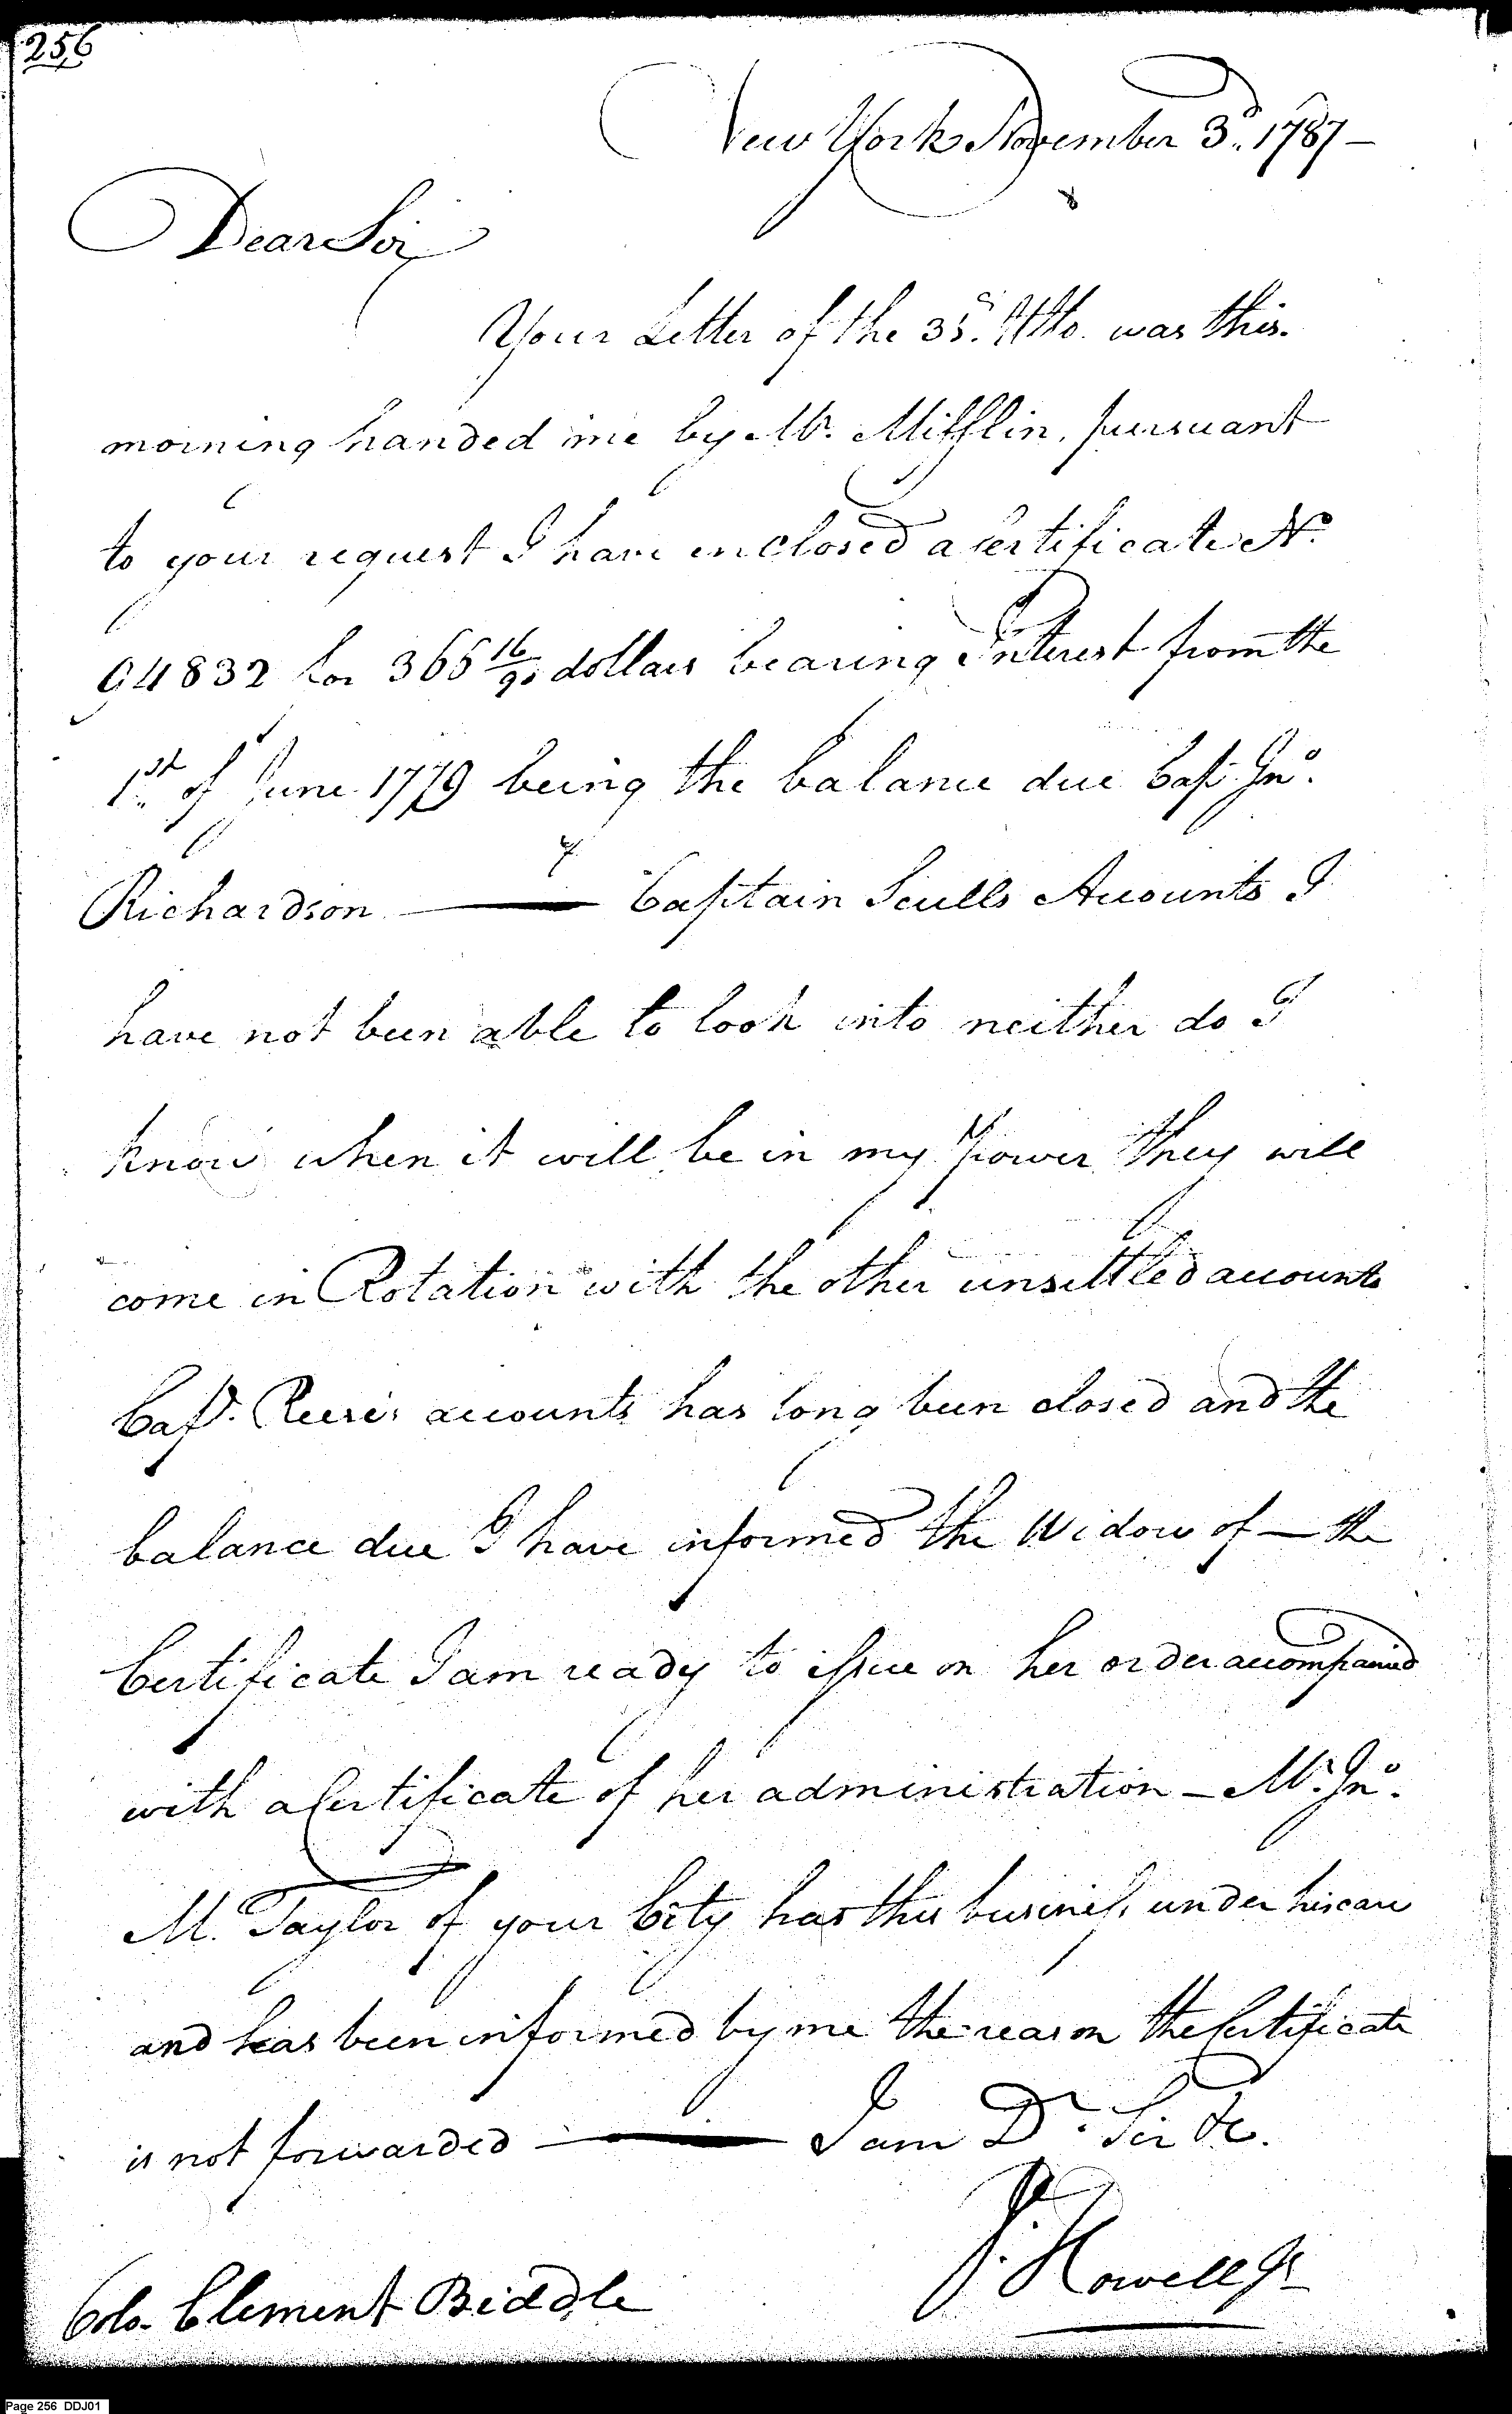 256
New York November 3d. 1787 –
Dear Sir
Your Letter of the Ulto. was this
morning handed me by Mr. Mifflin, pursuant
to your request I have enclosed a Certificate No.
94832 for 366 16/90 dollars bearing Interest from the
1st. of June 1779 being the balance due Capt. Jno.
Richardson —— Captain Sculls Accounts I
have not been able to look into neither do I
know when it will be in my Power they will
come in Rotation with the other unsettled accounts
Capt. Reeses accounts has long been closed and the
balance due I have informed the Widow of — the
Certificate I am ready to issue on her order accompanied
with a Certificate of her administration – Mr. Jno.
M. Taylor of your City has this business under his care
and has been informed by me the reason the Certificate
is not forwarded —— I am Dr. Sir &c.
J. Howell Jr
Colo. Clement Biddle
Page 256 DDJ01